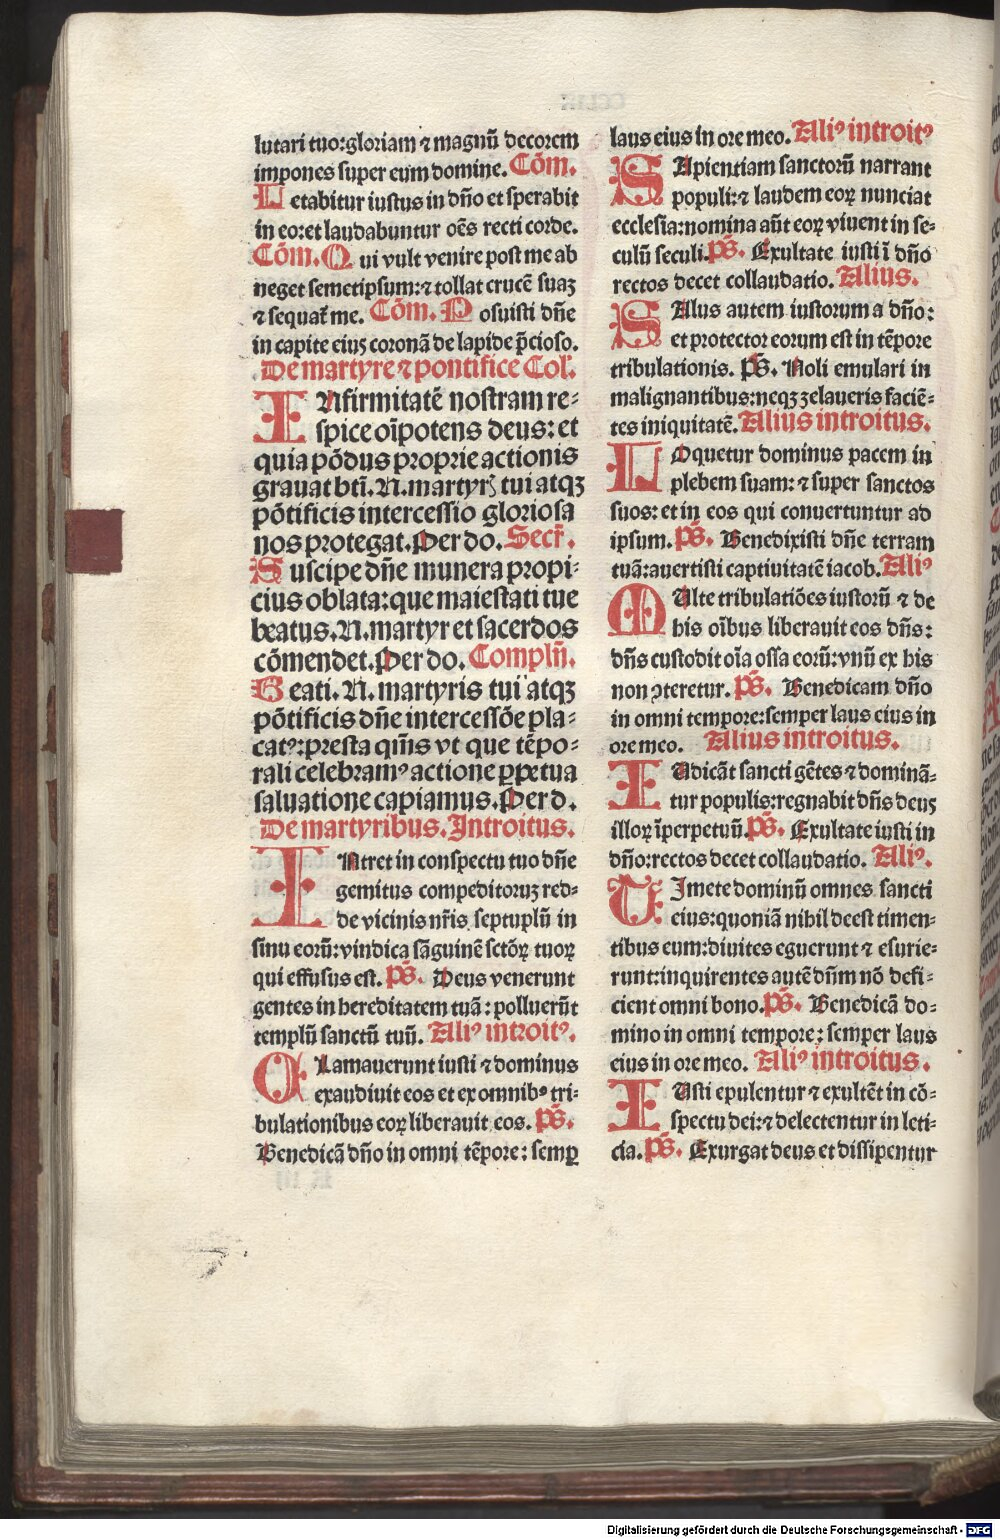 lutari tuo:gloriam ⁊ magnū decorem
impones super eum domine. Cōm.
Letabitur iustus in dño et sperabit
in eo:et laudabuntur oēs recti corde.
Cōm. Qui vult venire post me ab
neget semetipsum:⁊ tollat crucē suaꝫ
⁊ sequat᷑ me. Cōm. Posuisti dñe
in capite eiꝰ coronā de lapide p̄cioso.
De martyre ⁊ pontifice Col᷑.
INfirmitatē nostram re-
spice oīpotens deus: et
quia pōdus proprie actionis
grauat bt̄i. N. martyrꝭ tui atqꝫ
pōtificis intercessio gloriosa
nos protegat. Per do. Secr̄.
Suscipe dñe munera propi-
cius oblata: que maiestati tue
beatus. N. martyr et sacerdos
cōmendet. Per do. Complñ.
Beati. N. martyris tui atqꝫ
pōtificis dñe intercessōe pla-
catꝰ: presta qm̄s vt que tēpo-
rali celebramꝰ actione ꝑpetua
saluatione capiamus. Per d.
De martyribus. Introitus.
INtret in conspectu tuo dñe
gemitus compeditoruꝫ red-
de vicinis nr̄is septuplū in
sinu eorū: vindica sāguinē sctōꝝ tuoꝝ
qui effusus est. p̄s. Deus venerunt
gentes in hereditatem tuā: polluerūt
templū sanctū tuū. Aliꝰ introitꝰ.
CLamauerunt iusti ⁊ dominus
exaudiuit eos et ex omnibꝰ tri-
bulationibus eoꝝ liberauit eos. p̄s.
Benedicā dño in omni tēpore: semꝑ
laus eius in ore meo. Aliꝰ introitꝰ
SApientiam sanctorū narrant
populi:⁊ laudem eoꝝ nunciat
ecclesia: nomina aūt eoꝝ viuent in se-
culū seculi. p̄s. Exultate iusti ī dño
rectos decet collaudatio. Alius.
SAlus autem iustorum a dño:
et protector eorum est in tēpore
tribulationis. p̄s. Noli emulari in
malignantibus: neqꝫ zelaueris faciē-
tes iniquitatē. Alius introitus.
LOquetur dominus pacem in
plebem suam: ⁊ super sanctos
suos: et in eos qui conuertuntur ad
ipsum. p̄s. Benedixisti dñe terram
tuā: auertisti captiuitatē iacob. Aliꝰ
MUlte tribulatiōes iustorū ⁊ de
his oībus liberauit eos dñs:
dñs custodit oīa ossa eorū: vnū ex his
non ꝯteretur. p̄s. Benedicam dño
in omni tempore: semper laus eius in
ore meo. Alius introitus.
IUdicāt sancti gētes ⁊ dominā-
tur populis: regnabit dñs deꝰ
illoꝝ īperpetuū. p̄s. Exultate iusti in
dño: rectos decet collaudatio. Aliꝰ.
TImete dominū omnes sancti
eius: quoniā nihil deest timen-
tibus eum: diuites eguerunt ⁊ esurie-
runt: inquirentes autē dñm nō defi-
cient omni bono. p̄s. Benedicā do-
mino in omni tempore: semper laus
eius in ore meo. Aliꝰ introitus.
IUsti epulentur ⁊ exultēt in cō-
spectu dei:⁊ delectentur in leti-
cia. p̄s. Exurgat deus et dissipentur
Digitalisierung gefördert durch die Deutsche Forschungsgemeinschaft - DFG